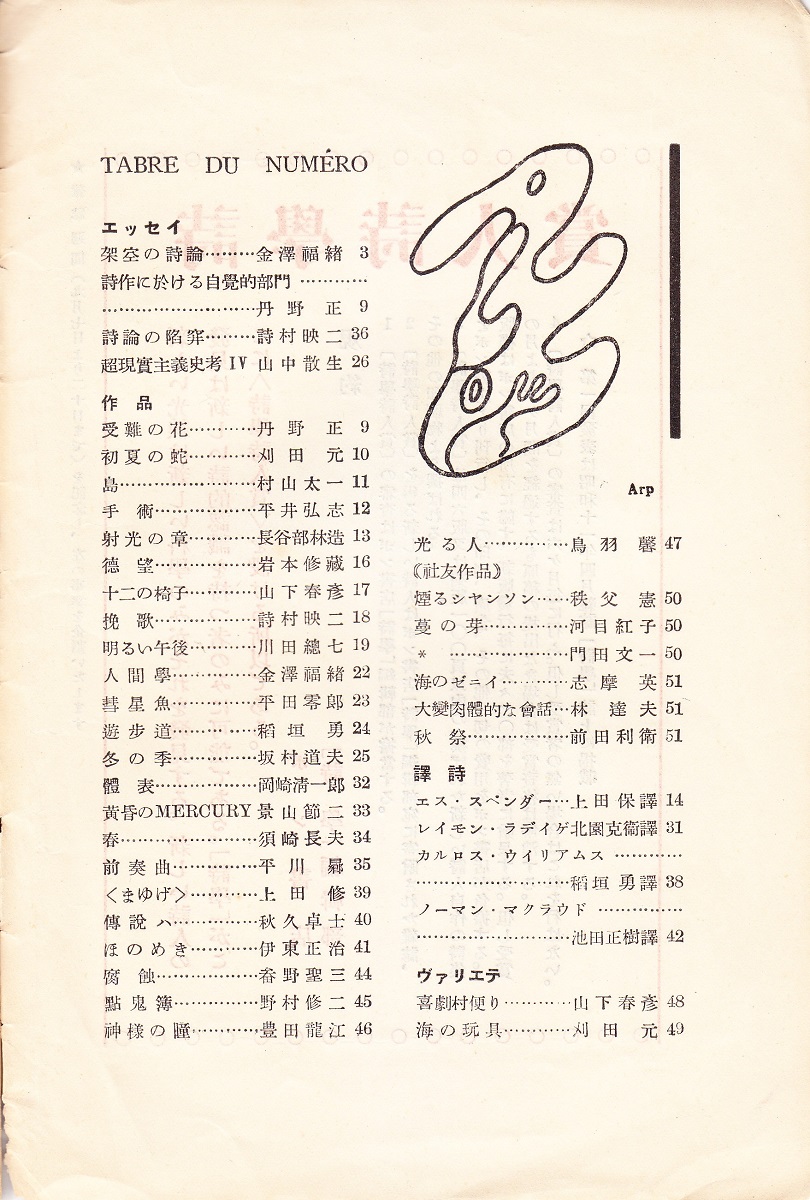 TABRE DU NUMÉRO
エッセイ
架空の詩論………金澤福緒 3
詩作に於ける自覺的部門…………
……………………丹野正 9
詩論の陷穽………詩村映二 36
超現實主義史考 IV 山中散生 26
作品
受難の花…………丹野正 9
初夏の蛇…………刈田元 10
島…………………村山太一 11
手術………………平井弘志 12
射光の章…………長谷部林造 13
德望………………岩本修藏 16
十二の椅子………山下春彥 17
挽歌………………詩村映二 18
明るい午後………川田總七 19
人間學……………金澤福緒 22
彗星魚……………平田零郞 23
遊步道……………稻垣勇 24
冬の季……………坂村道夫 25
體表………………岡崎淸一郞 32
黃昏のMERCURY 景山節二 33
春…………………須崎長夫 34
前奏曲……………平川 35
<まゆげ>…………上田修 39
傳說ハ……………秋久卓士 40
ほのめき…………伊東正治 41
腐蝕………………野聖三 44
點鬼簿……………野村修二 45
神樣の瞳…………豊田龍江 46
Arp
光る人……………鳥羽馨 47
《社友作品》
煙るシヤンソン……秩父憲 50
蔓の芽……………河目紅子 50
* ……………門田文一 50
海のゼニイ…………志摩英 51
大變肉體的な會話…林達夫 51
秋祭………………前田利衞 51
譯詩
エス・スペンダー…上田保譯 14
レイモン・ラデイゲ北園克衞譯 31
カルロス・ウイリアムス…………
……………………稻垣勇譯 38
ノーマン・マクラウド……………
……………………池田正樹譯 42
ヴァリエテ
喜劇村便り…………山下春彥 48
海の玩具……………刈田元 49